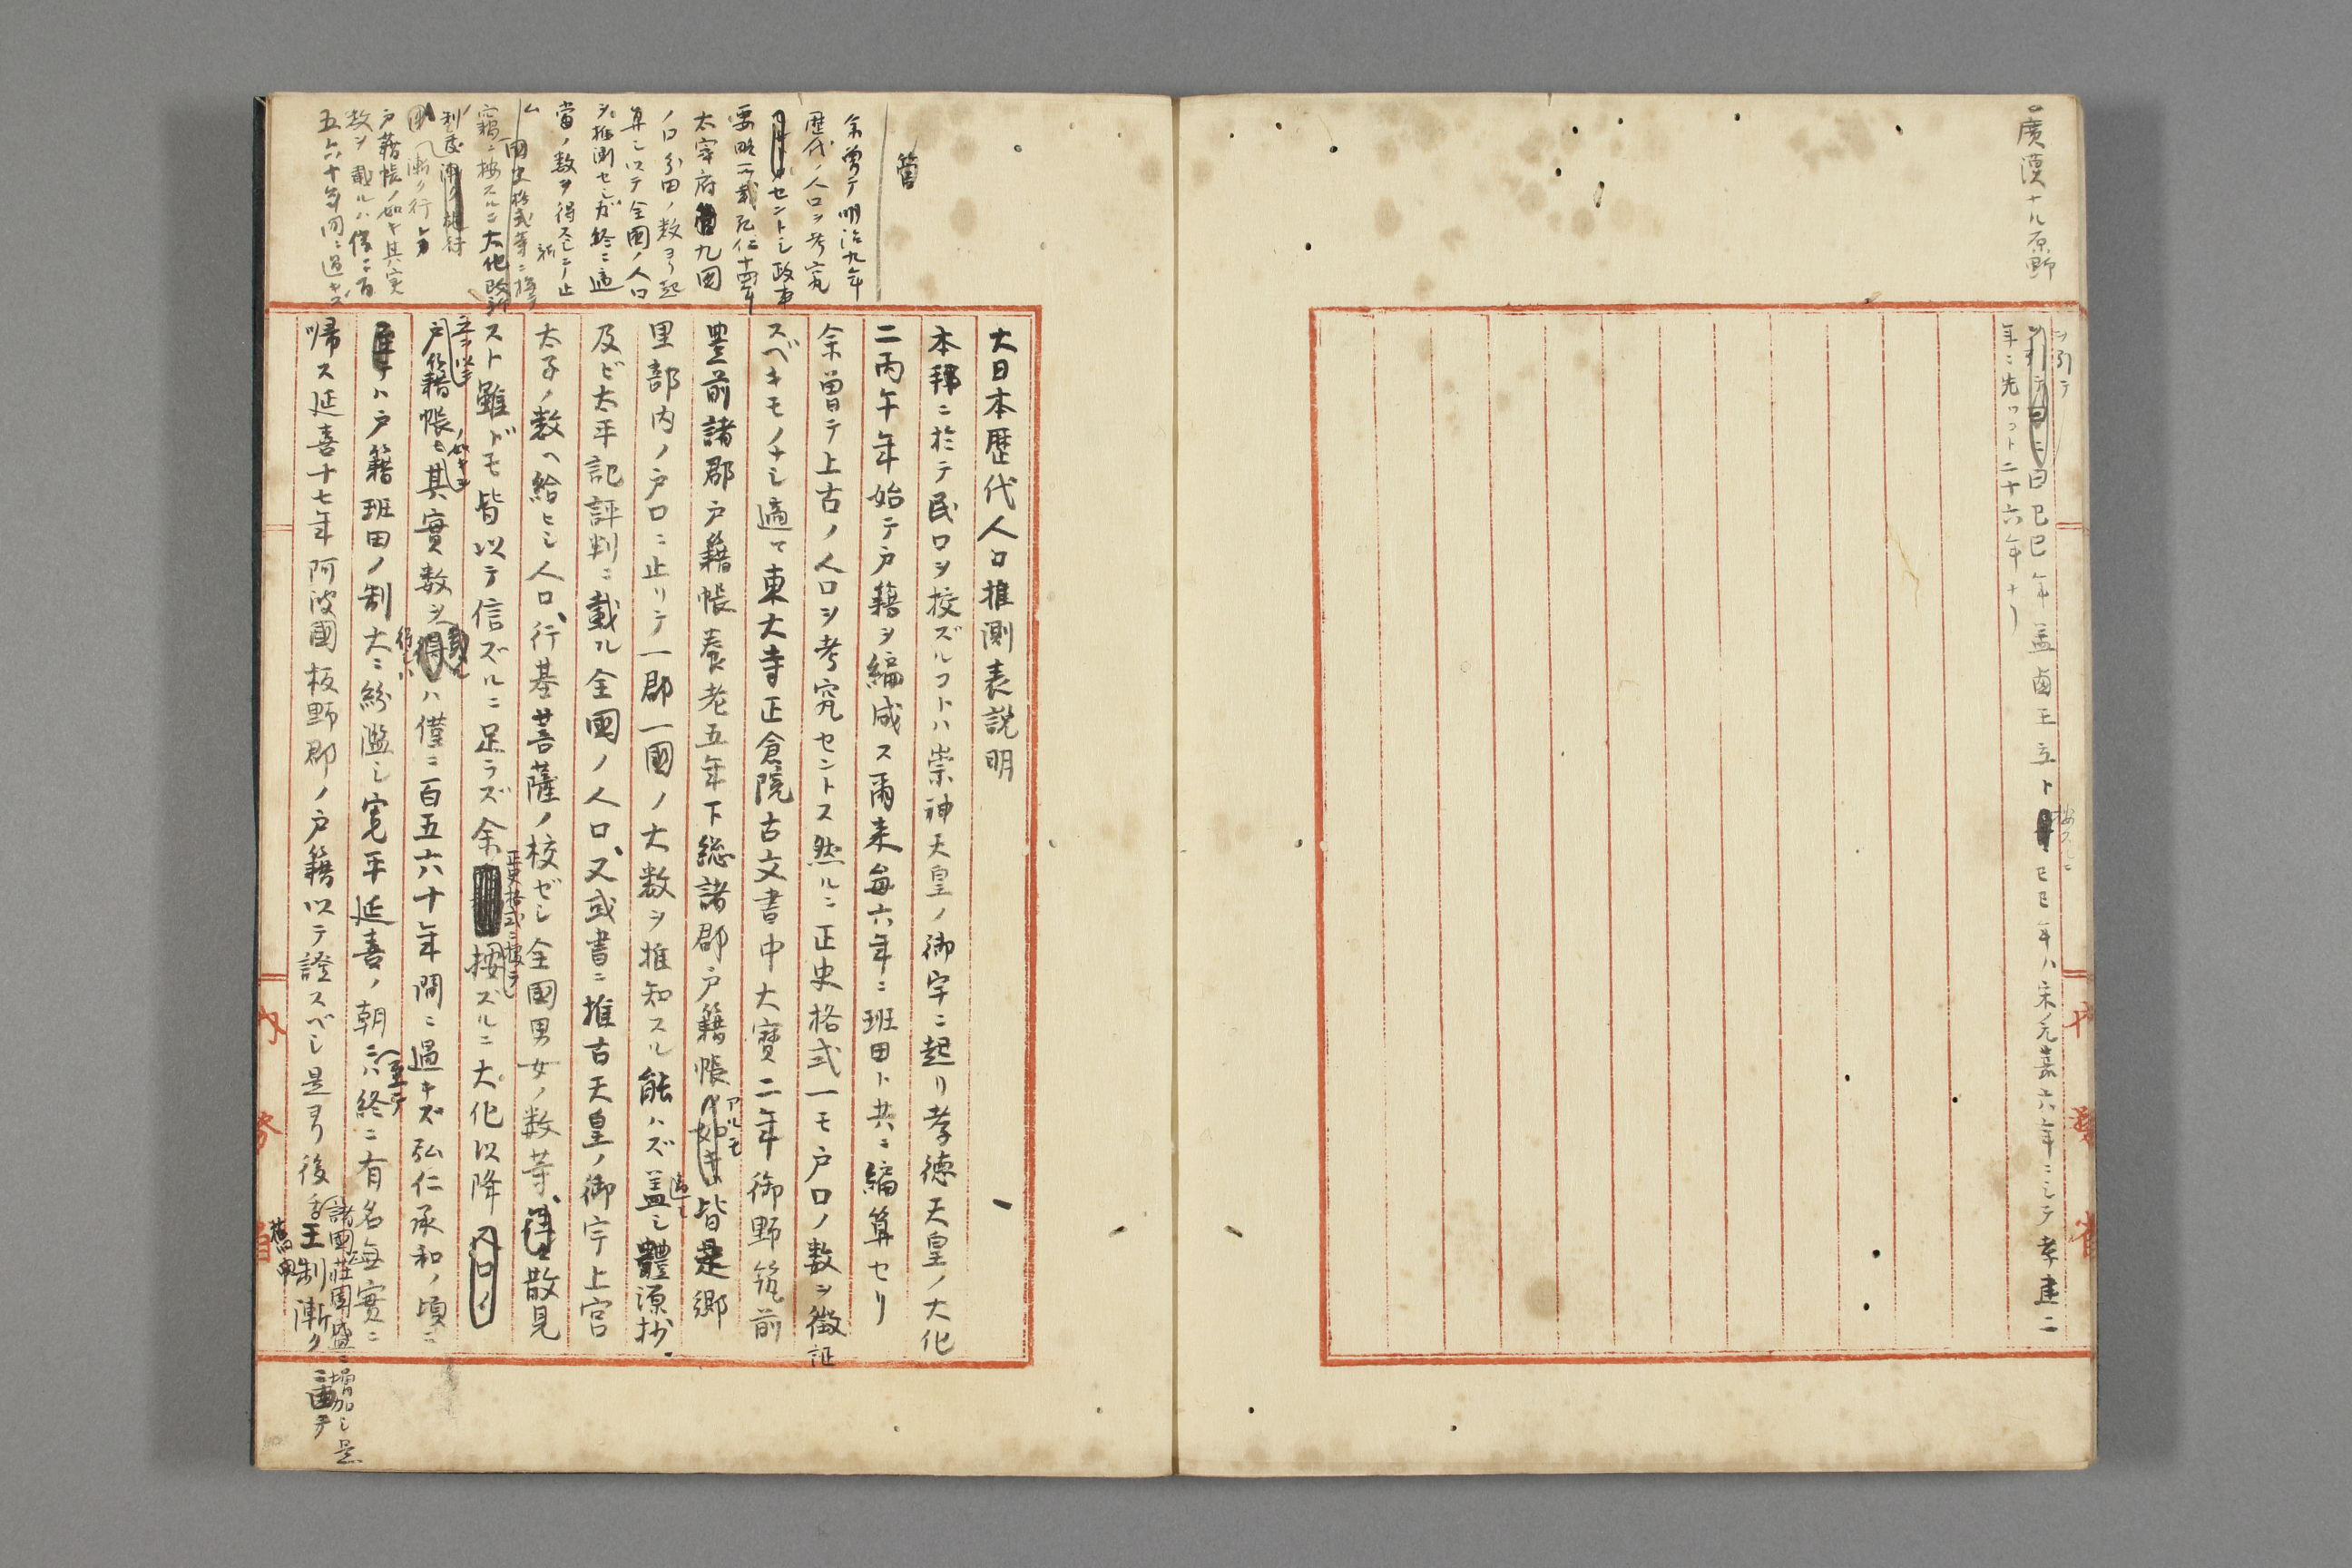 廣漠ナル原野
ヲ引テ
曰己巳年蓋鹵王立ト己巳年ハ宋ノ元嘉六年ニシテ孝建二
按スルニ
年ニ先ツコト二十六年ナリ
内務省
余曽テ明治九年
歴代ノ人口ヲ考究
セントシ政事
要略ニ載弘仁十四年
太宰府管九国
ノ口分田ノ数ヨリ起
算シ以テ全國ノ人口
ヲ推測セシガ終ニ適
當ノ数ヲ得ス
國史格式等ニ據
竊ニ按スルニ大化改新
漸ク行レ
戸籍帳ノ如キ其実
数ヲ載ルハ僅ニ百
五六十年間ニ過キス
大日本歴代人口推測表説明
本邦ニ於テ民口ヲ校ズルコトハ崇神天皇ノ御宇ニ起リ孝徳天皇ノ大化
二丙午年始テ戸籍ヲ編成ス爾来毎六年ニ班田ト共ニ編算セリ
余曽テ上古ノ人口ヲ考究セントス然ルニ正史格式一モ戸口ノ数ヲ徴証
スベキモノナシ適々東大寺正倉院古文書中大寳二年御野筑前
豊前諸郡戸籍帳養老五年下総諸郡戸籍帳如キ皆是郷
アルモ
里部内ノ戸口ニ止リテ一郡一國ノ大数ヲ推知スル能ハズ蓋シ體源抄
及ビ太平記評判ニ載ル全國ノ人口、又或書ニ推古天皇ノ御宇上宮
太子ノ数ヘ給ヒシ人口、行基菩薩ノ校ゼシ全國男女ノ数等、往々散見
スト雖ドモ皆以テ信ズルニ足ラズ余按ズルニ大化以降
正史格式ニ據テ
戸籍帳モ其實数ヲ得ハ僅ニ百五六十年間ニ過キズ弘仁承和ノ頃ニ
ノ如キモ
ハ戸籍班田ノ制大ニ紛濫シ寛平延喜ノ朝ニハ終ニ有名無實ニ
至テ
帰ス延喜十七年阿波國板野郡ノ戸籍以テ證スベシ是ヨリ後王制漸ク
諸國荘園盛ニ増加シ是
ニ由テ
内務省